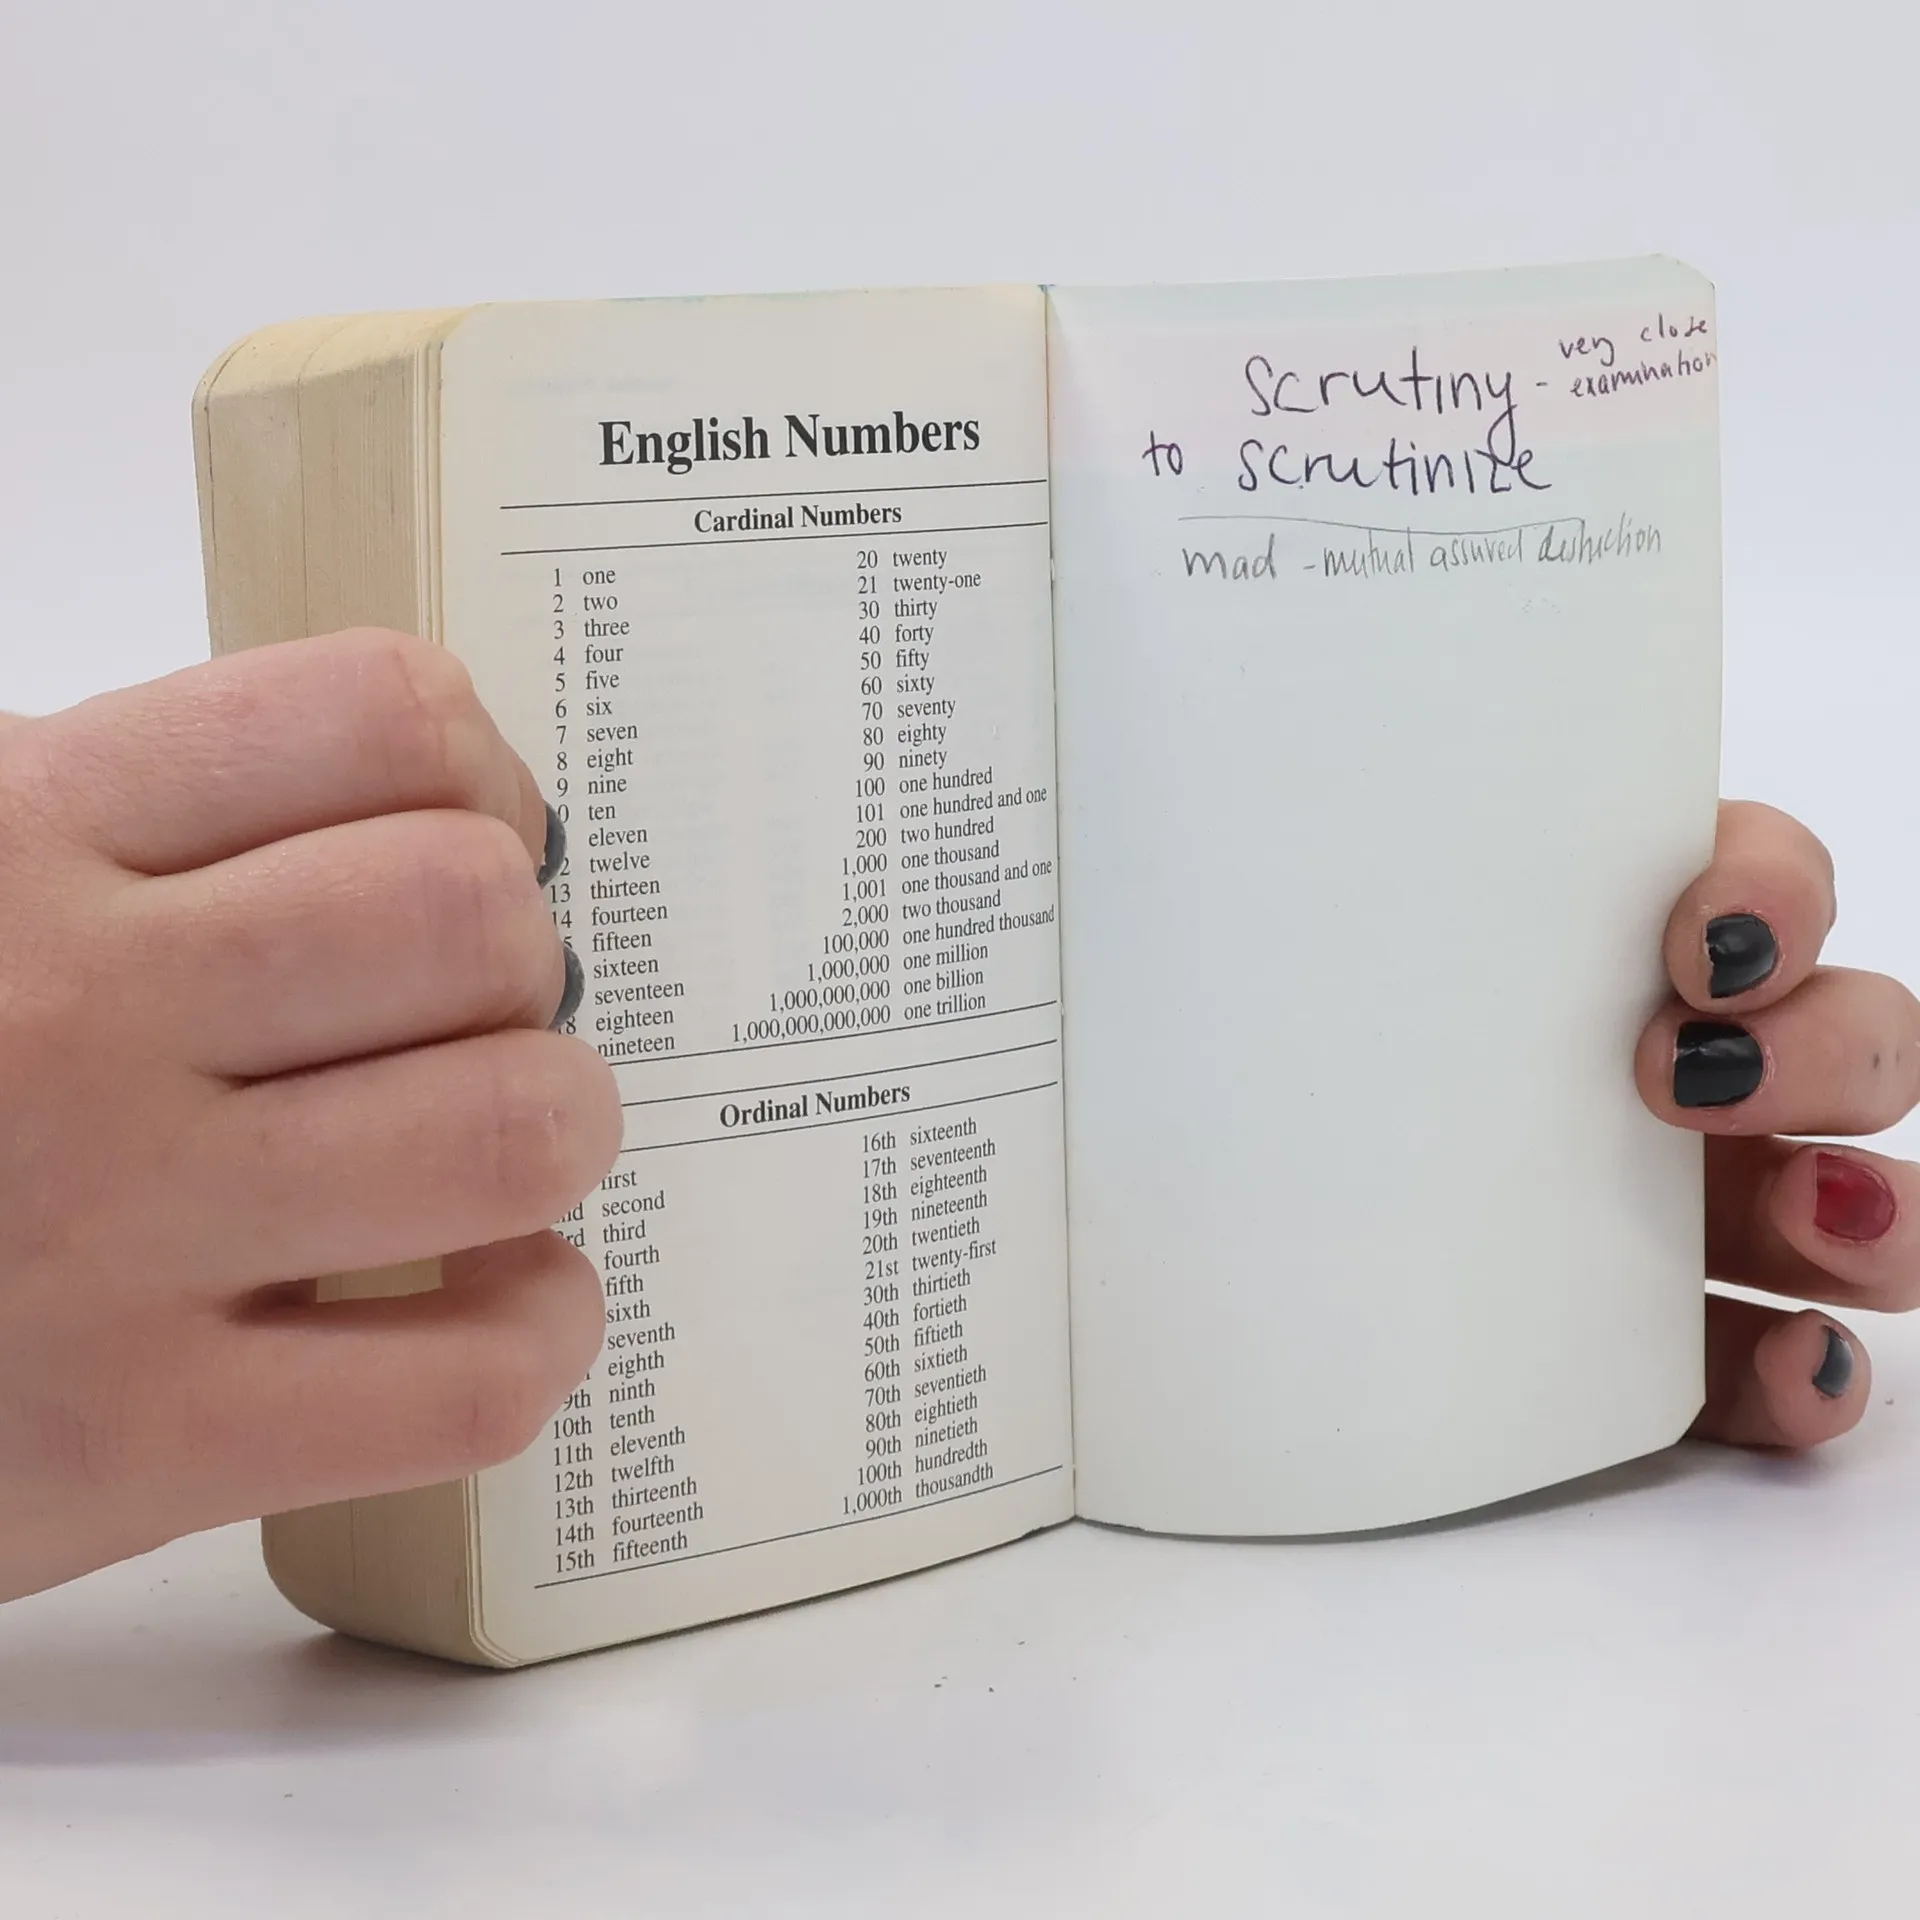 English Numbers
Cardinal Numbers
1 one
2 two
3 three
4 four
5 five
6 six
7 seven
8 eight
9 nine
0 ten
eleven
2 twelve
13 thirteen
14 fourteen
5 fifteen
sixteen
seventeen
18 eighteen
nineteen
20 twenty
21 twenty-one
30 thirty
40 forty
50 fifty
60 sixty
70 seventy
80 eighty
90 ninety
100 one hundred
101 one hundred and one
200 two hundred
1,000 one thousand
1,001 one thousand and one
2,000 two thousand
100,000 one hundred thousand
1,000,000 one million
1,000,000,000 one billion
1,000,000,000,000 one trillion
Ordinal Numbers
first
nd second
rd third
fourth
fifth
sixth
seventh
eighth
9th ninth
10th tenth
11th eleventh
12th twelfth
13th thirteenth
14th fourteenth
15th fifteenth
16th sixteenth
17th seventeenth
18th eighteenth
19th nineteenth
20th twentieth
21st twenty-first
30th thirtieth
40th fortieth
50th fiftieth
60th sixtieth
70th seventieth
80th eightieth
90th ninetieth
100th hundredth
1,000th thousandth
Scrutiny - very close
examination
to scrutinize
mad - mutual assured destruction